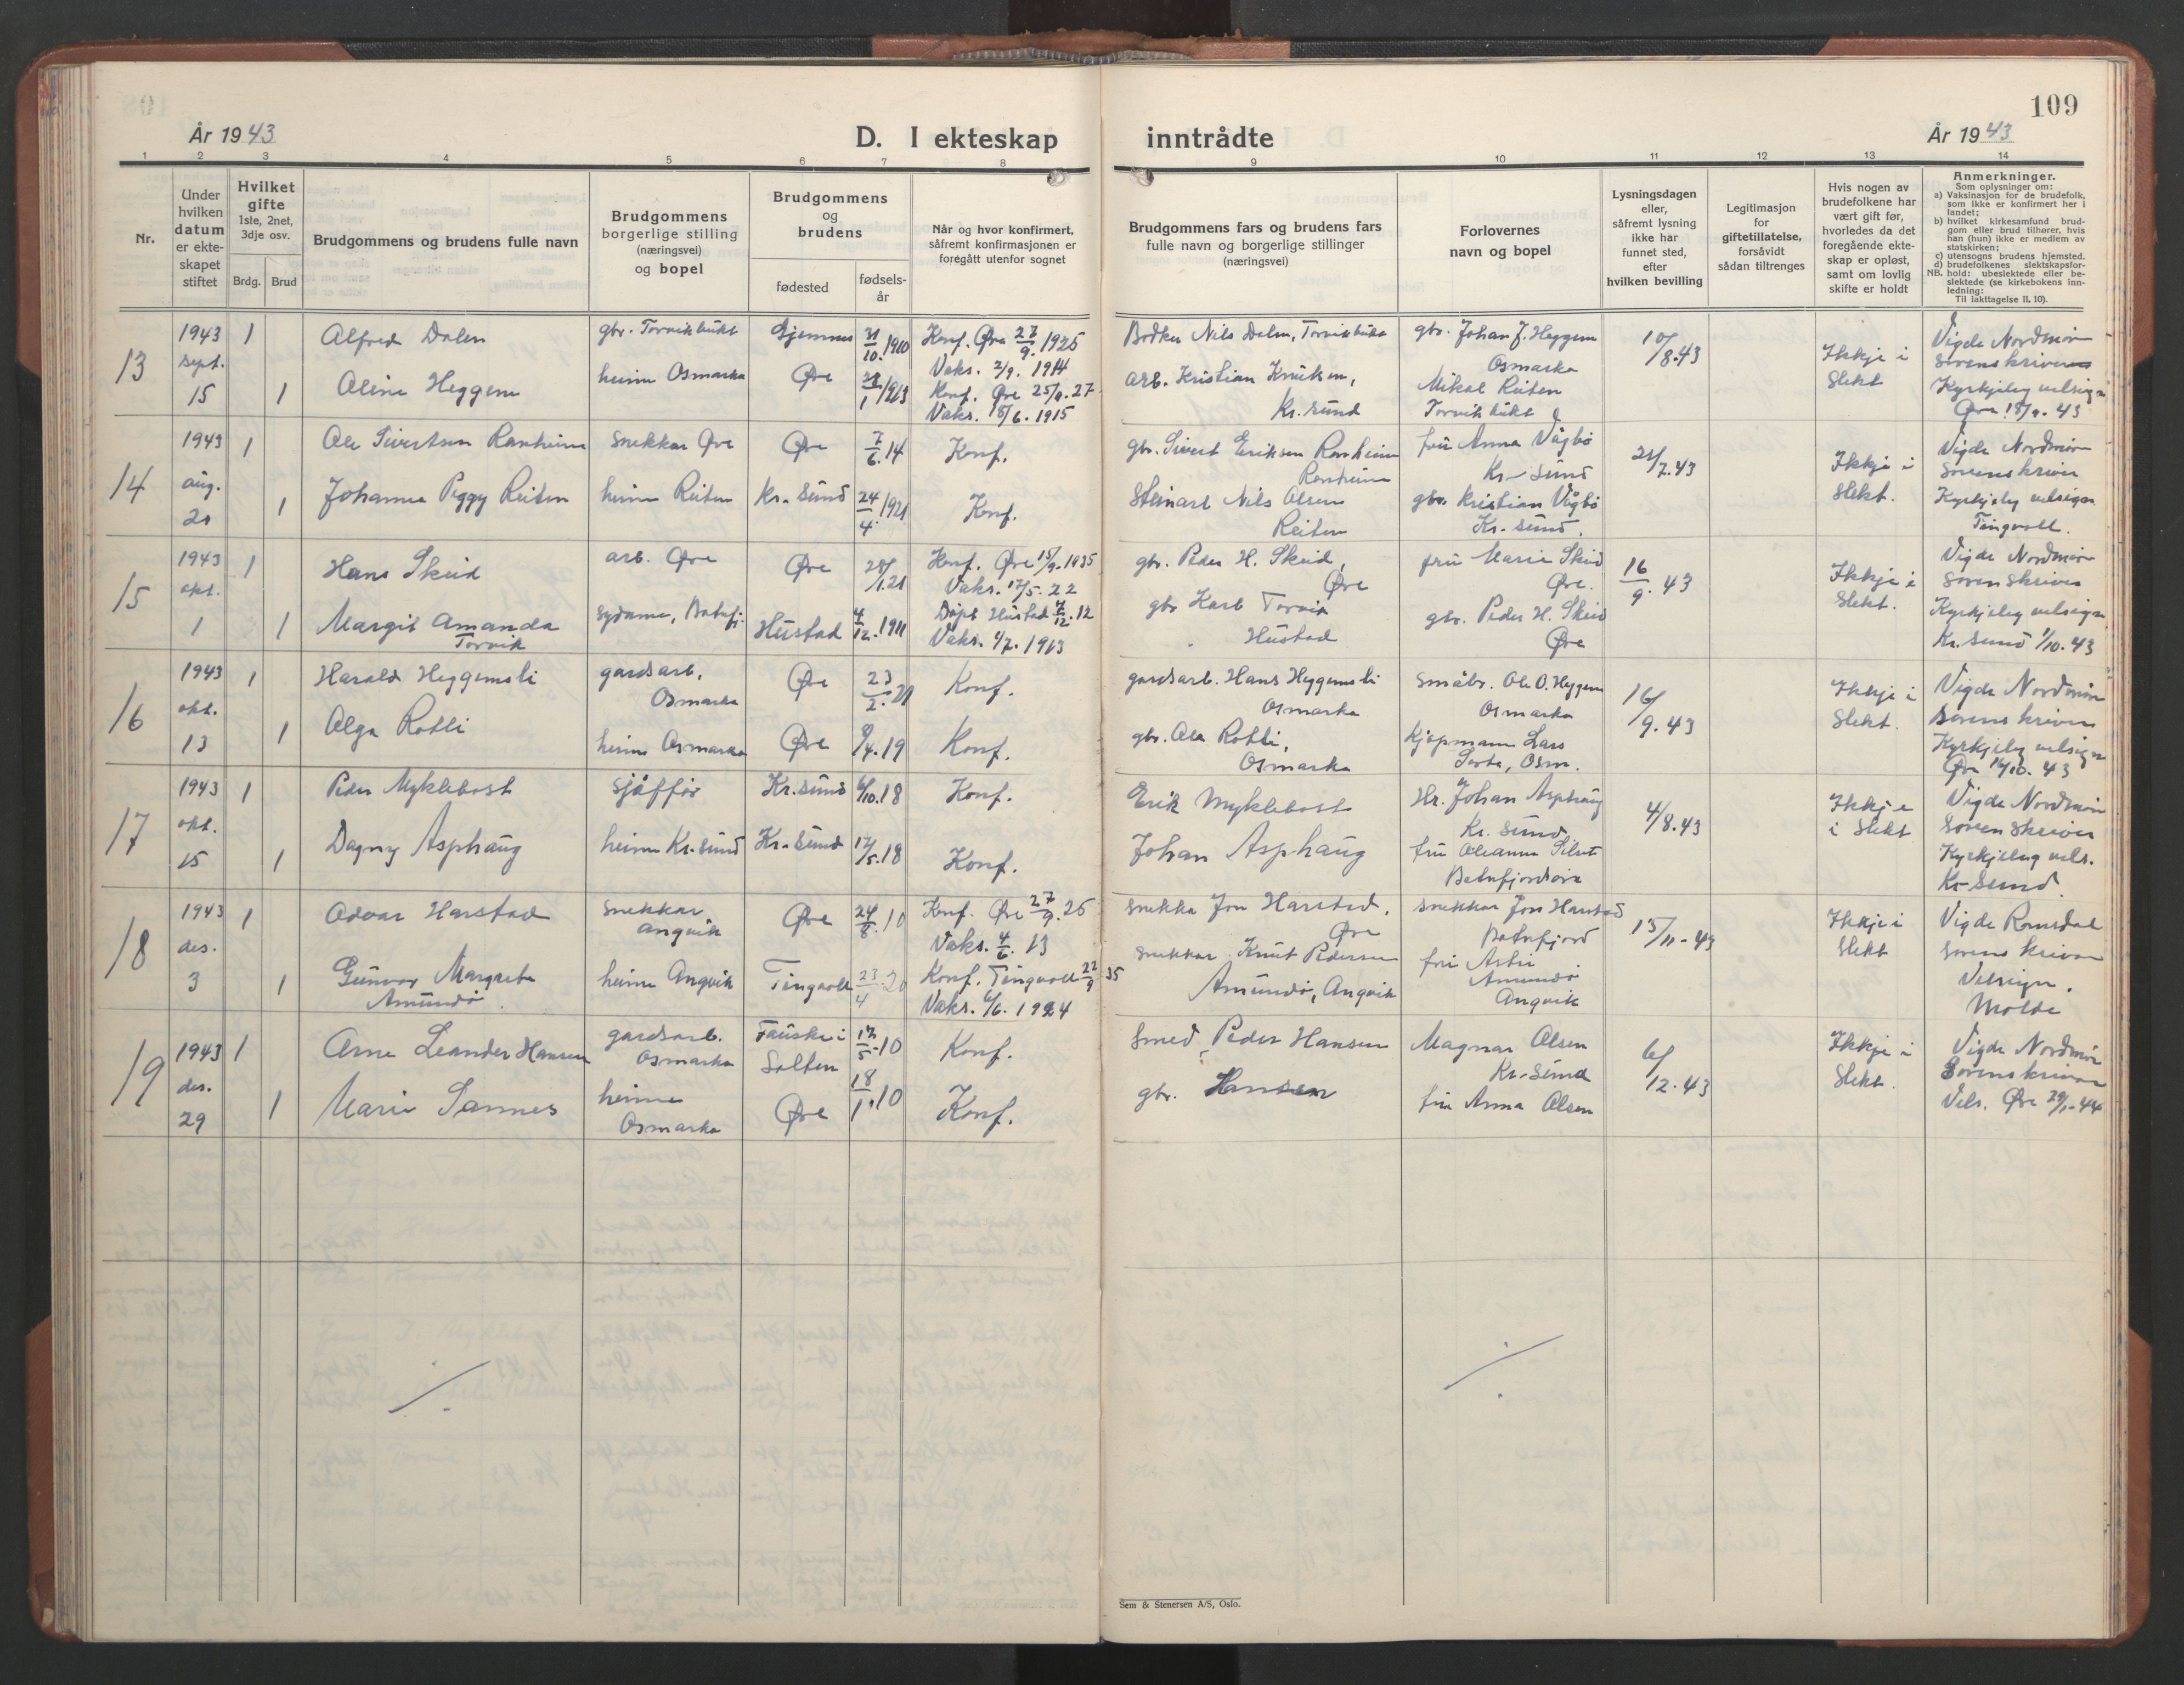 109
År 1943
D. I ekteskap inntrådte
År 1943
1 2 3 4 5 6 7 8 9 10 11 12 13 14
Nr.
Under hvilken datum er ekte-skapet stiftet
Hvilket gifte 1ste, 2net, 3dje osv.
Brdg. Brud
Brudgommens og brudens fulle navn
Brudgommens borgerlige stilling (næringsvei) og bopel
Brudgommens og brudens
fødested
fødsels-år
Når og hvor konfirmert, såfremt konfirmasjonen er foregått utenfor sognet
Brudgommens fars og brudens fars fulle navn og borgerlige stillinger (næringsvei)
Forlovernes navn og bopel
Lysningsdagen eller, såfremt lysning ikke har funnet sted, efter hvilken bevilling
Legitimasjon for giftetillatelse, forsåvidt sådan tiltrenges
Hvis nogen av brudefolkene har vært gift før, hvorledes da det foregående ekte-skap er opløst, samt om lovlig skifte er holdt
Anmerkninger.
Som oplysninger om:
a) Vaksinasjon for de brudefolk, som ikke er konfirmert her i landet;
b) hvilket kirkesamfund brud-gom eller brud tilhører, hvis han (hun) ikke er medlem av statskirken;
c) utensogns brudens hjemsted.
d) brudefolkenes slektskapsfor-hold: ubeslektede eller be-slektede (se kirkebokens inn-ledning:
NB.
Til iakttagelse II, 10).
13
1943 sept. 15
1
Alfred Dalen
gbr. Torvikbukt
Gjemnes
31/10.1910
Konf. Øre 27/9. 1925
Vaks. 2/9. 1914
Bødker Nils Dalen, Torvikbukt
gbr. Johan J. Heggem
Osmarka
10/8.43
Ikkje i Slekt
Vigde Nordmør
Sorenskriver
1
Aline Heggem
heime Osmarka
Øre
Konf. Øre 25/9.27
Vaks. 15/6. 1915
arb. Kristian Knutsen,
Kr. sund
Mikal Reiten
Torvikbukt
Kyrkjeleg velsign
Øre 15/9. 43
14
1943 aug. 21
1
Ole Sivertsen Ranheim
Snekkar Øre
Øre
7/6.14
Konf.
gbr. Sivert Eriksen Ranheim
Ranheim
fru Anna Vågbø
Kr-sund
21/7.43
Ikkje i Slekt.
Vigde Nordmør
Sorenskriver
1
Johanna Peggy Reiten
heime Reiten
Kr. Sund
24/4.1921
Konf.
Steinarb Nils Olsen
Reiten
gbr. Kristian Vågbø
Kr. sund.
Kyrkjeleg velsign
Tingvoll.
15
1943 okt. 1
1
Hans Skeid
arb. Øre
Øre
Konf. Øre 15/9. 1935
Vaks. 17/5. 22
gbr. Peder H. Skeid,
Øre
fru Marie Skeid
Øre.
16/9. 43
Ikkje i Slekt.
Vigde Nordmør
Sorenskriver
1
Margit Amanda
Torvik
Sydame, Batnfj.
Hustad
4/12.1911
Døpt Hustad
Vaks. 4/7. 1913
gbr Karl Torvik
Hustad
gbr. Peder H. Skeid
Øre
Kyrkjeleg velsign
Kr. sund 1/10. 43
16
1943 okt. 13
1
Harald Heggemsli
gardsarb.
Osmarka
Øre
23/2.21
Konf.
gardsarb. Hans Heggemsli
Osmarka
Småbr. Ole O. Heggem
Osmarka
16/9.43
Ikkje i Slekt.
Vigde Nordmør
Sorenskriver
1
Olga Rotli
heime Osmarka
Øre
Konf.
gbr. Ola Rotli,
Osmarka
Kjøpmann Lars
Osm.
Kyrkjeleg velsign
Øre 14/10. 43
17
1943 okt. 15
1
Peder Myklebost
sjåffør
Kr. sund
6/10.18
Konf.
Erik Myklebost
Hr. Johan Asphaug
Kr. sund
4/8.43
Ikkje i Slekt
Vigde Nordmør
Sorenskriver
1
Dagny Asphaug
heime Kr. sund
Kr. Sund
17/5.18
Konf.
Johan Asphaug
fru Oleanna
Batnfjordsøra
Kyrkjeleg vels.
Kr-Sund
18
1943 des. 3
1
Odvar Harstad
Snekkar
Angvik
Øre
24/8.10
Konf. Øre 27/9.25
Vaks. 4/6. 13
snekkar Jon Harstad,
Øre
snekkar Jon Harstad
Batnfjord
15/11-43
Ikkje i Slekt
Vigde Romsdal
Sorenskrivar
1
Gunvor Margrete
Amundø
heime Angvik
Tingvoll
23/4.20
Konf. Tingvoll 22/9 35
Vaks. 6/6. 1924
snekkar Knut Pedersen
Amundø, Angvik
fru Astri
Amundø
Angvik
Velsign.
Molde
19
1943 des. 29
1
Arne Leander Hansen
gardsarb.
Osmarka
Fauske i
Salten
17/5.10
Konf.
Smed Peder Hansen
Magnar Olsen
Kr. Sund
6/12.43
Ikkje i Slekt.
Vigde Nordmør
Sorenskrivar
1
Marie Sannes
heime
Osmarka
Øre
18/1.10
Konf.
gbr. Hansen
fru Anna Olsen
Vels. Øre 29/1-44
Sem & Stenersen A/S, Oslo.